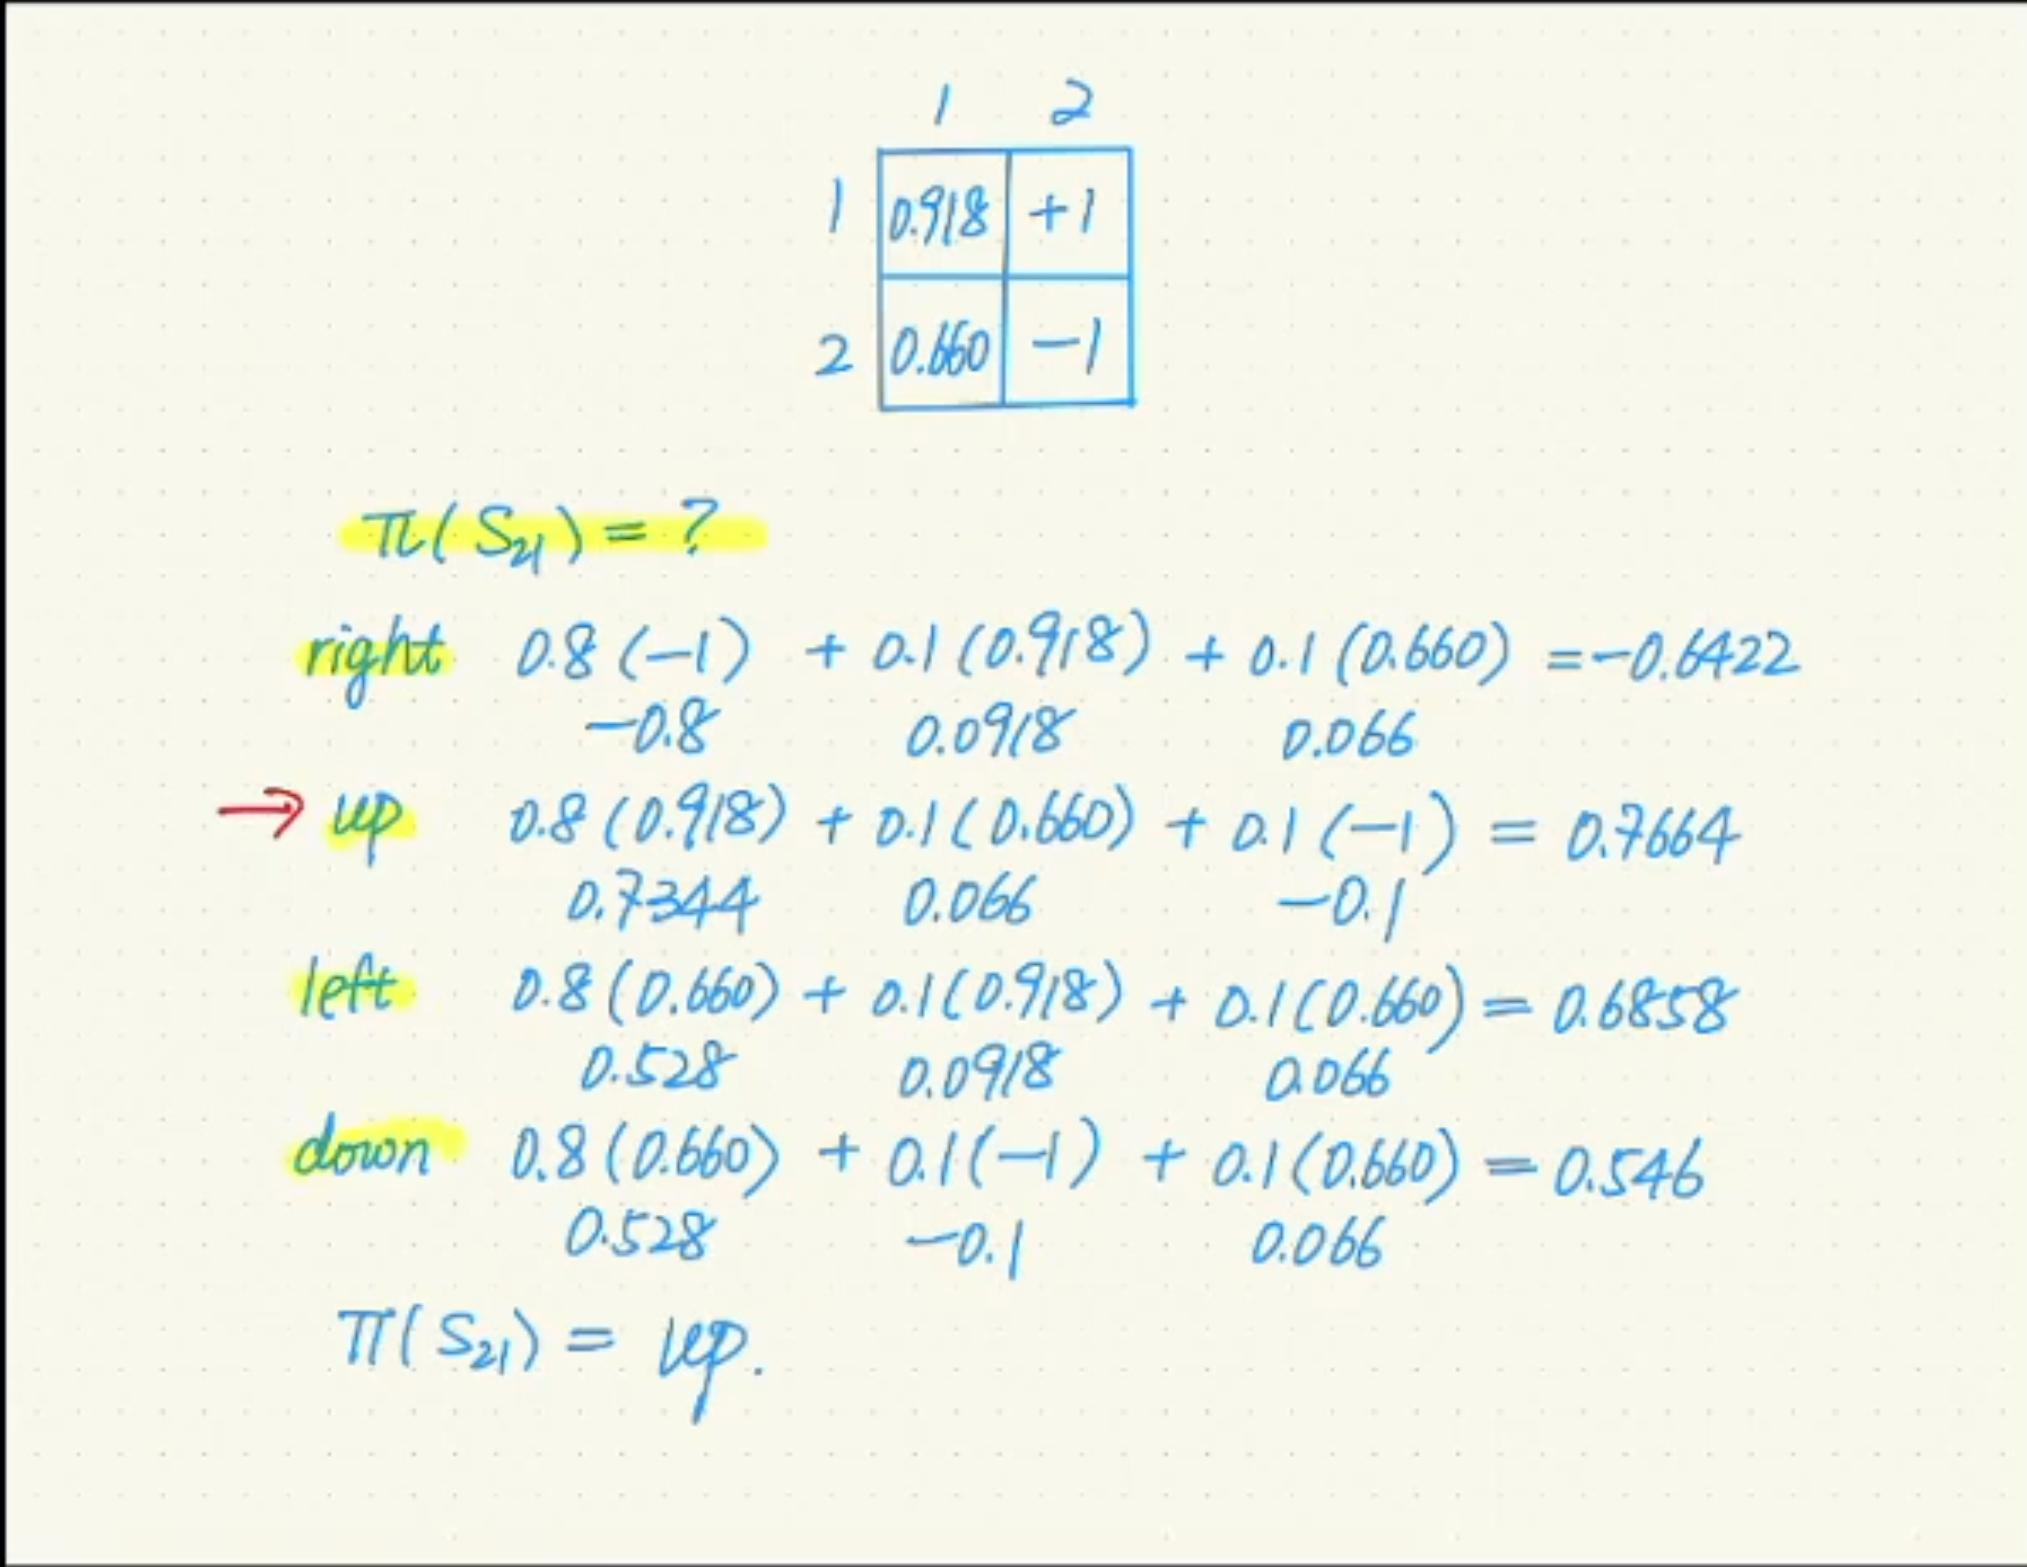 1 2
1 0.918 +1
2 0.660 -1
π(S21) = ?
right 0.8(-1) + 0.1(0.918) + 0.1(0.660) = -0.6422
-0.8 0.0918 0.066
→ up 0.8(0.918) + 0.1(0.660) + 0.1(-1) = 0.7664
0.7344 0.066 -0.1
left 0.8(0.660) + 0.1(0.918) + 0.1(0.660) = 0.6858
0.528 0.0918 0.066
down 0.8(0.660) + 0.1(-1) + 0.1(0.660) = 0.546
0.528 -0.1 0.066
π(S21) = up.